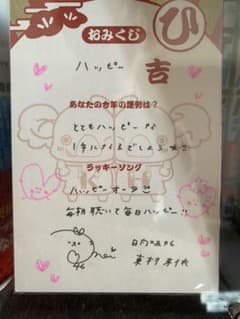 おみくじ
ひ
ハッピー
吉
あなたの今年の運勢は?
とてもハッピーな
1年になるでしょう
ラッキーソング
ハッピーオーラ
毎朝聴いて毎日ハッピー!!
日向坂46